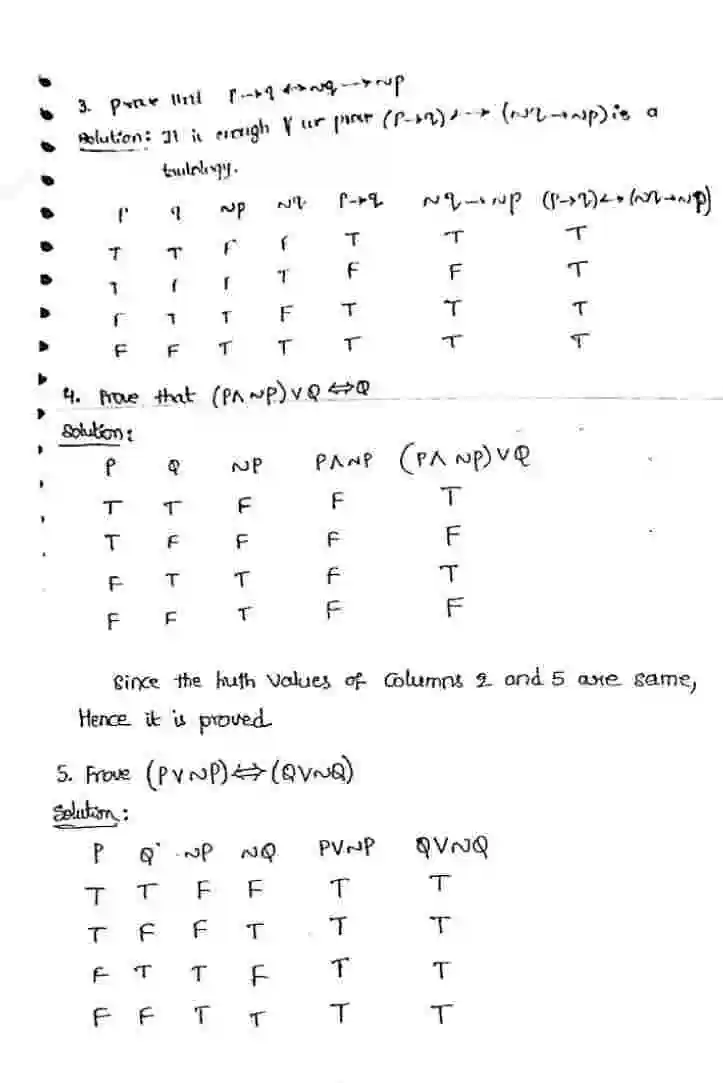 3. Prove that P→q ↔ ~q → ~p
Solution: It is enough if we prove (P→q) ↔ (~q→~p) is a
tautology.
P q ~p ~q P→q ~q→~p (P→q)↔(~q→~p)
T T F F T T T
T F F T F F T
F T T F T T T
F F T T T T T
4. Prove that (P∧~P)∨Q ⇔ Q
Solution:
P Q ~P P∧~P (P∧~P)∨Q
T T F F T
T F F F F
F T T F T
F F T F F
Since the truth values of columns 2 and 5 are same,
Hence it is proved
5. Prove (P∨~P)⇔(Q∨~Q)
Solution:
P Q ~P ~Q P∨~P Q∨~Q
T T F F T T
T F F T T T
F T T F T T
F F T T T T